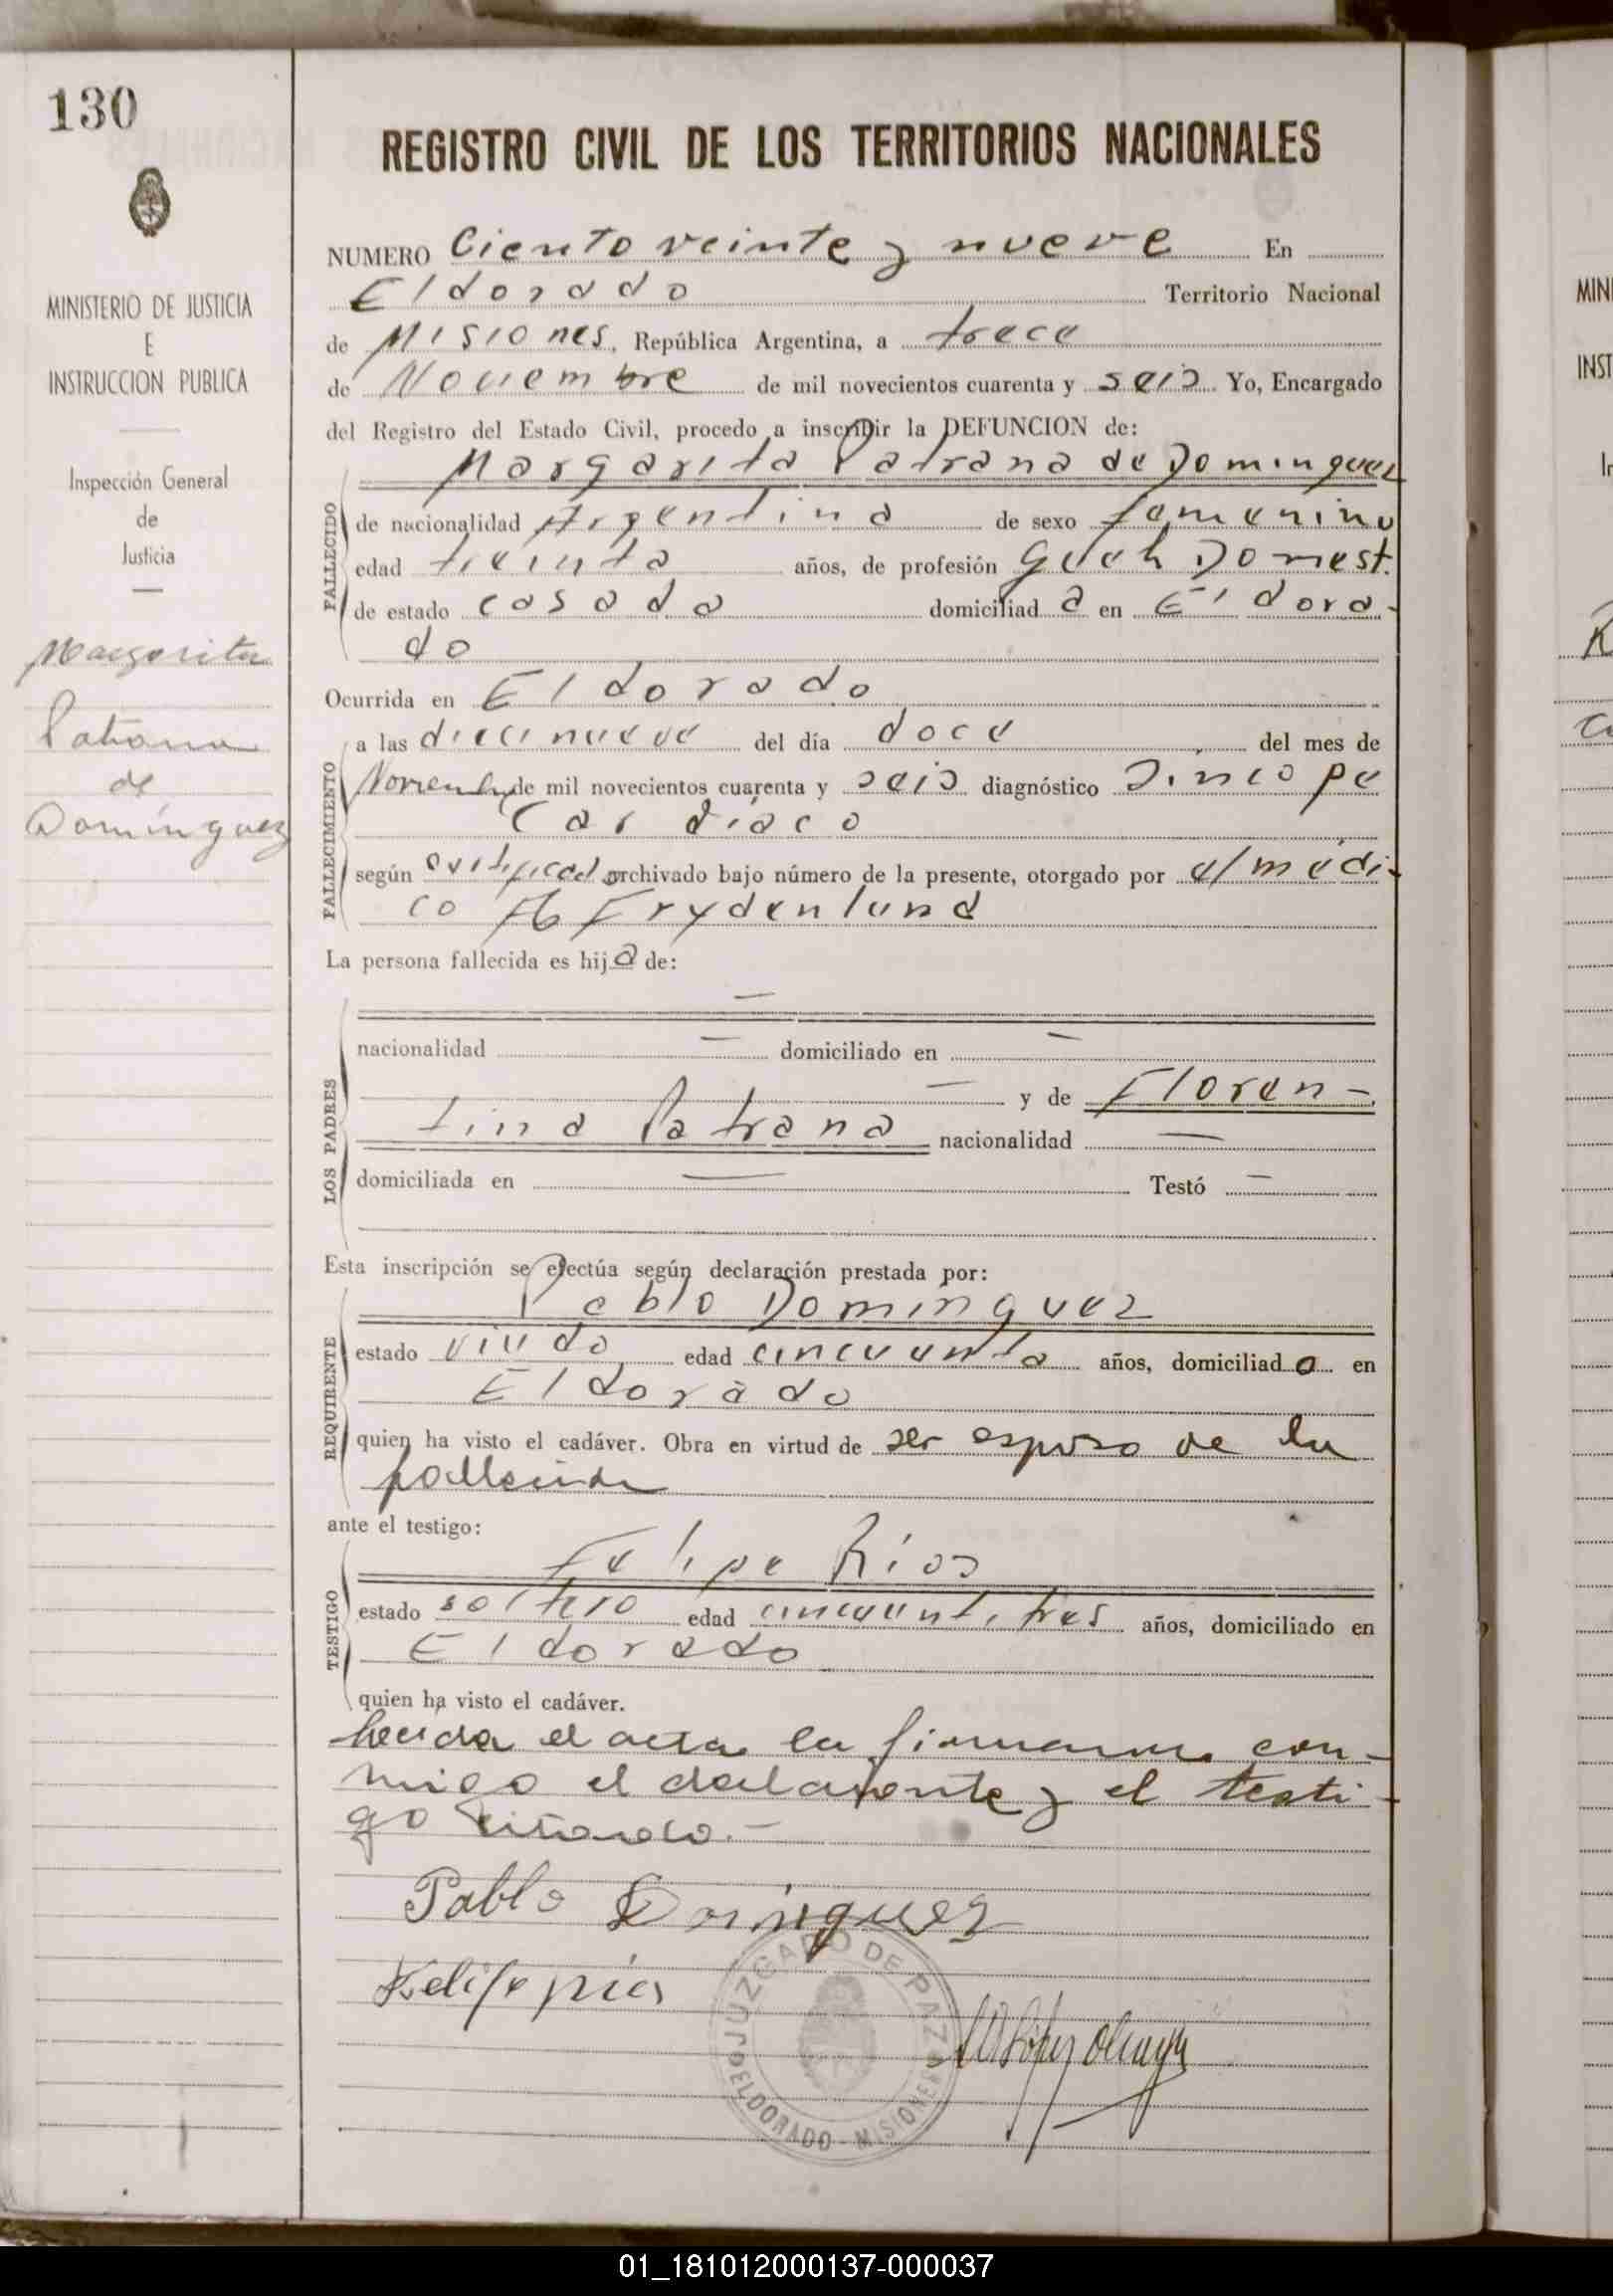 130
REGISTRO CIVIL DE LOS TERRITORIOS NACIONALES
MINISTERIO DE JUSTICIA
E
INSTRUCCION PUBLICA
Inspección General
de
Justicia
Margarita
Patrana
de
Domínguez
NUMERO Ciento veinte y nueve En
Eldorado Territorio Nacional
de Misiones, República Argentina, a trece
de Noviembre de mil novecientos cuarenta y seis. Yo, Encargado
del Registro del Estado Civil, procedo a inscribir la DEFUNCION de:
Margarita Patrana de Dominguez
FALLECIDO
de nacionalidad Argentina de sexo femenino
edad treinta años, de profesión Queh Domest.
de estado casada domiciliad a en Eldora-
do
Ocurrida en Eldorado
FALLECIMIENTO
a las diecinueve del día doce del mes de
Noviembre de mil novecientos cuarenta y seis diagnóstico Síncope
Cardíaco
según certificado archivado bajo número de la presente, otorgado por el médi-
co Frydenlund
La persona fallecida es hija de:
—
LOS PADRES
nacionalidad — domiciliado en —
— y de Floren-
tina Patrana nacionalidad —
domiciliada en — Testó —
Esta inscripción se efectúa según declaración prestada por:
Pablo Dominguez
REQUIRENTE
estado viudo edad cincuenta años, domiciliado en
Eldorado
quien ha visto el cadáver. Obra en virtud de ser esposo de la
fallecida
ante el testigo:
Felipe Ríos
TESTIGO
estado soltero edad cincuentitres años, domiciliado en
Eldorado
quien ha visto el cadáver.
Leida el acta la firmaron con-
migo el declarante y el testi-
go citado.-
Pablo Dominguez
Felipe rios
López
JUZGADO DE PAZ
ELDORADO - MISIONES
MIN
INST
In
01_181012000137-000037